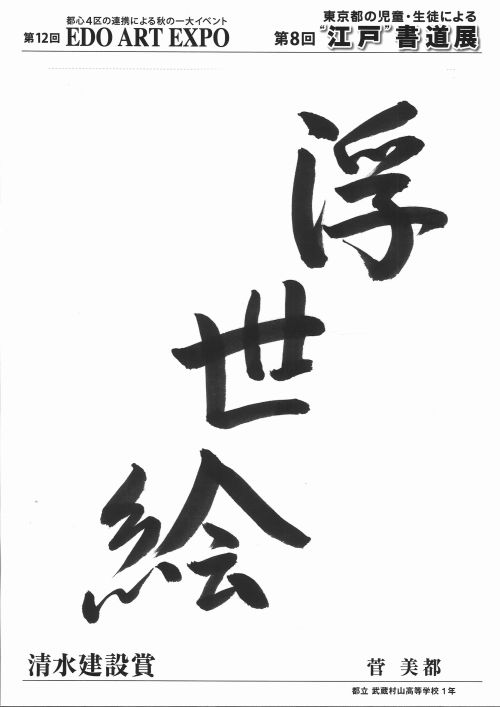 都心4区の連携による秋の一大イベント
第12回 EDO ART EXPO
東京都の児童・生徒による
第8回 "江戸"書道展
浮世絵
清水建設賞
菅 美都
都立 武蔵村山高等学校1年